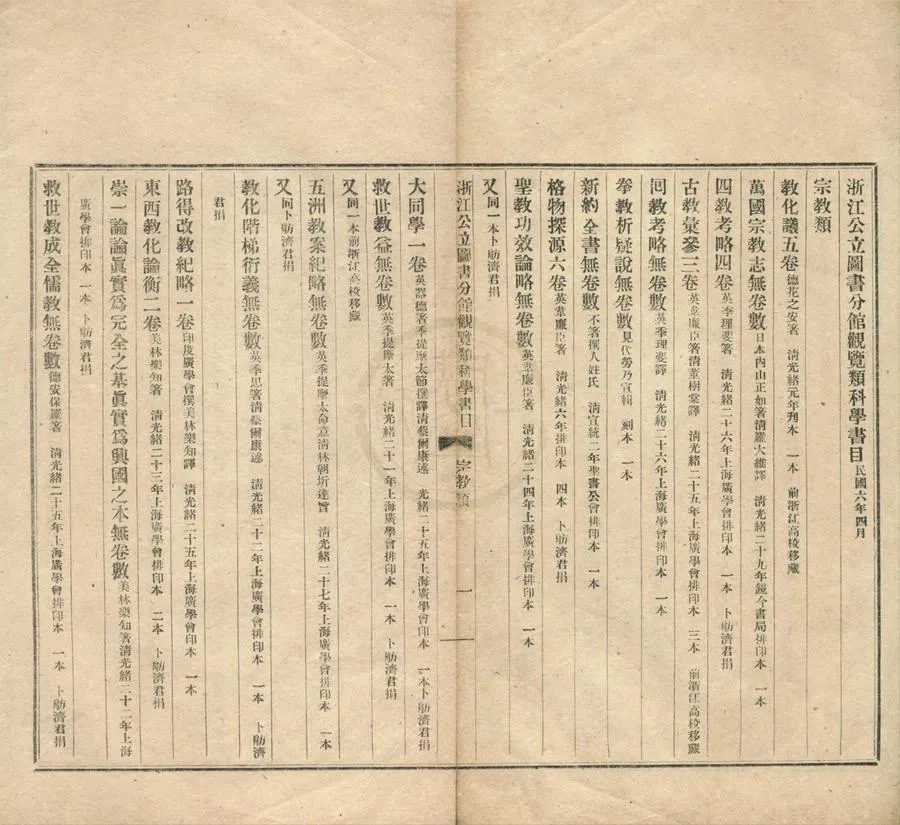 浙江公立圖書分館觀覽類科學書目 民國六年四月
宗教類
教化議五卷 德花之安著 清光緒元年刊本 一本 前浙江高校移藏
萬國宗教志無卷數 日本內山正如著清羅大維譯 清光緒二十九年鏡今書局排印本 一本
四教考略四卷 英季理斐著 清光緒二十六年上海廣學會排印本 一本 卜舫濟君捐
古教彙參三卷 英韋廉臣著清董樹棠譯 清光緒二十五年上海廣學會排印本 三本 前浙江高校移藏
囘教考略無卷數 英季理斐譯 清光緒二十六年上海廣學會排印本 一本
拳教析疑說無卷數 見代勞乃宣輯 刻本 一本
新約全書無卷數 不著撰人姓氏 清宣統二年聖書公會排印本 一本
格物探源六卷 英韋廉臣著 清光緒六年排印本 四本 卜舫濟君捐
聖教功效論略無卷數 英韋廉臣著 清光緒二十四年上海廣學會排印本 一本
又 同一本卜舫濟君捐
浙江公立圖書分館觀覽類科學書目 宗教類 一
大同學一卷 英器德著季提摩太節撰譯清蔡爾康述 光緒二十五年上海廣學會排印本 一本卜舫濟君捐
救世教益無卷數 英季提摩太著 清光緒二十一年上海廣學會排印本 一本 卜舫濟君捐
又 同一本前浙江高校移藏
五洲教案紀略無卷數 英季提摩太命意清林朝圻達旨 清光緒二十七年上海廣學會排印本 一本
又 同卜舫濟君捐
教化階梯衍義無卷數 英季思著清蔡爾康述 清光緒二十二年上海廣學會排印本 一本 卜舫濟
君捐
路得改教紀略一卷 印度廣學會撰美林樂知譯 清光緒二十五年上海廣學會印本 一本
東西教化論衡二卷 美林樂知著 清光緒二十三年上海廣學會排印本 二本 卜舫濟君捐
崇一論論眞實爲完全之基眞實爲興國之本無卷數 美林樂知著清光緒二十二年上海
廣學會排印本 一本 卜舫濟君捐
救世教成全儒教無卷數 德安保羅著 清光緒二十五年上海廣學會排印本 一本 卜舫濟君捐